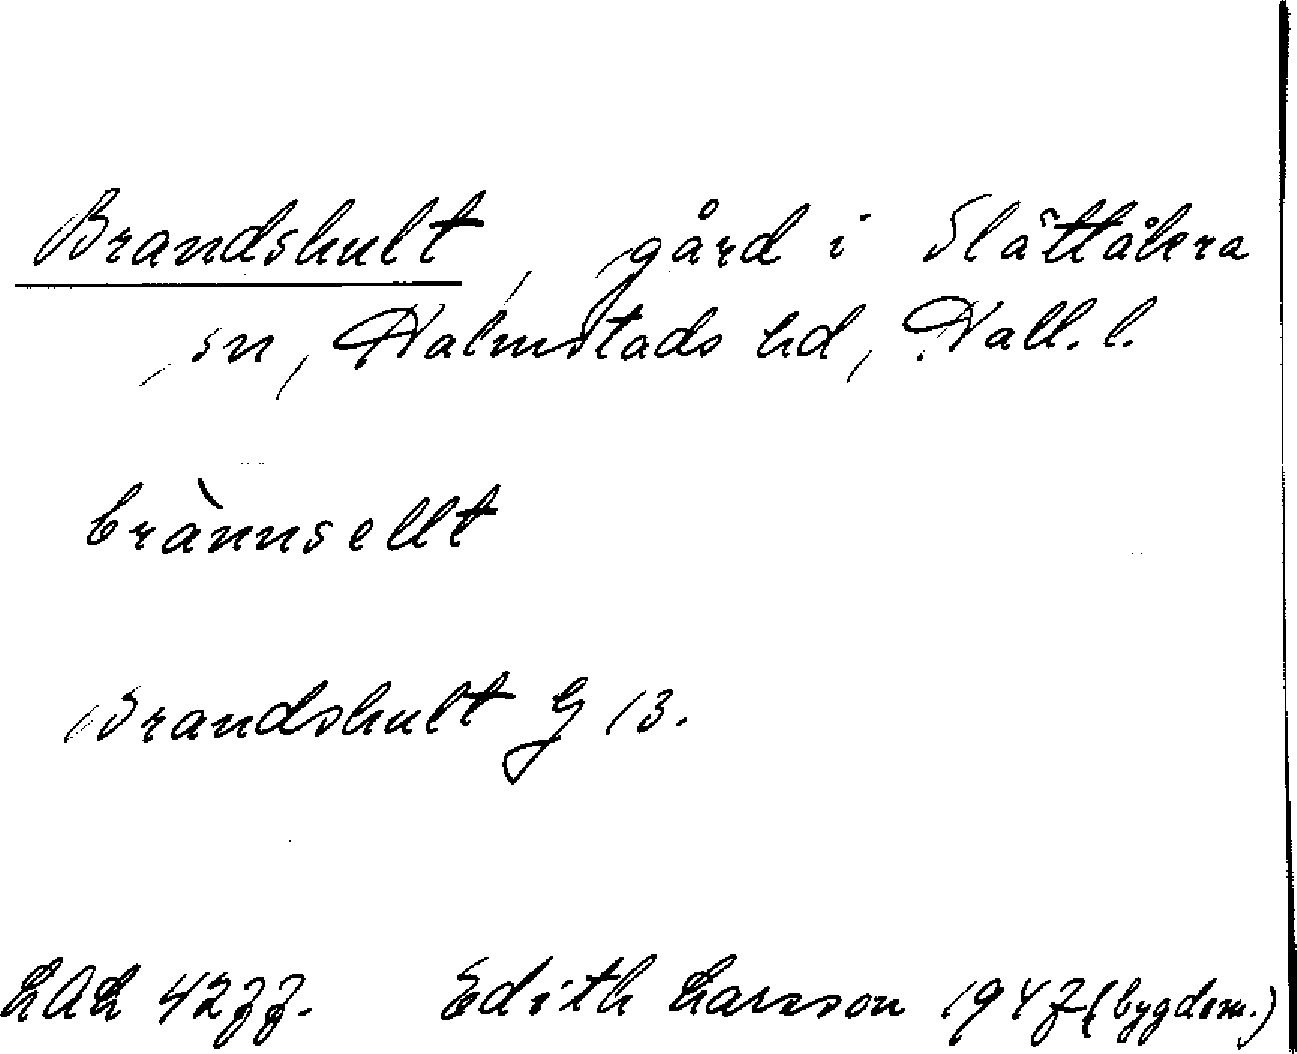 Brandshult, gård i Slättåkra
sn, Halmstads hd, Hall. l.
brànnsellt
Brandshult G 13.
LAL 4277. Edith Larsson 1947 (bygdem.)